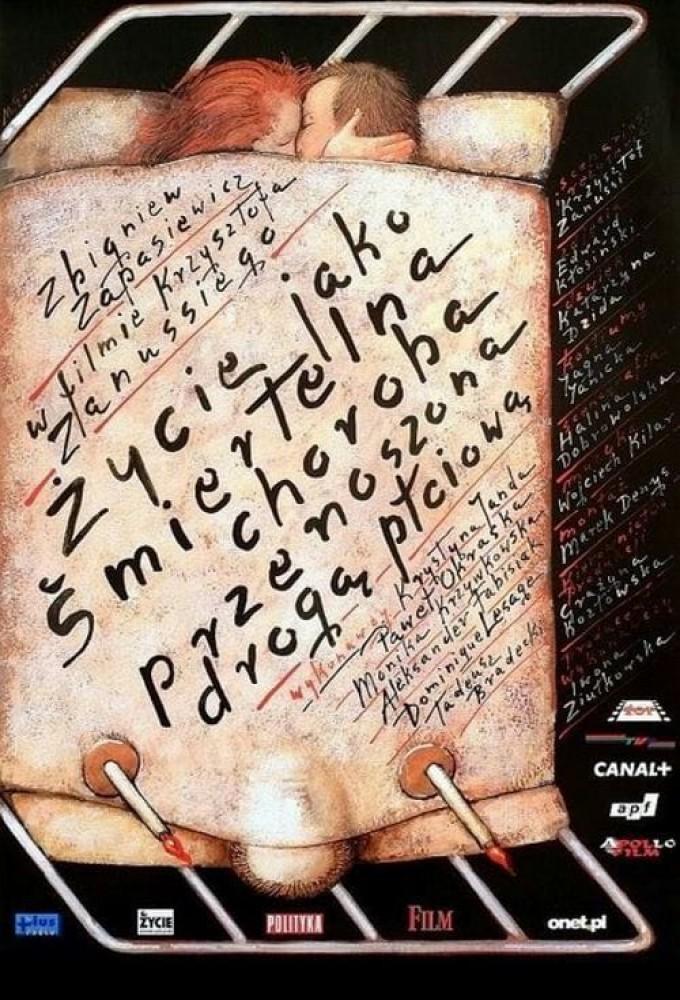 Zbigniew
Zapasiewicz
w filmie Krzysztofa
Zanussiego
Życie jako
śmiertelna
choroba
przenoszona
drogą płciową
wykonawcy Krystyna Janda
Paweł Okraska
Monika Krzywkowska
Aleksander Fabisiak
Dominique Lesage
Tadeusz
Bradecki
scenariusz
Krzysztof
Zanussi
Edward
Kłosiński
dźwięk
Katarzyna
Dzida
kostiumy
Jagna
Janicka
Halina
Dobrowolska
Wojciech Kilar
montaż
Marek Denys
Grażyna
Kozłowska
Iwona
Ziułkowska
tor
TV
CANAL+
apf
APOLLO
FILM
plus
ŻYCIE
POLITYKA
FILM
onet.pl